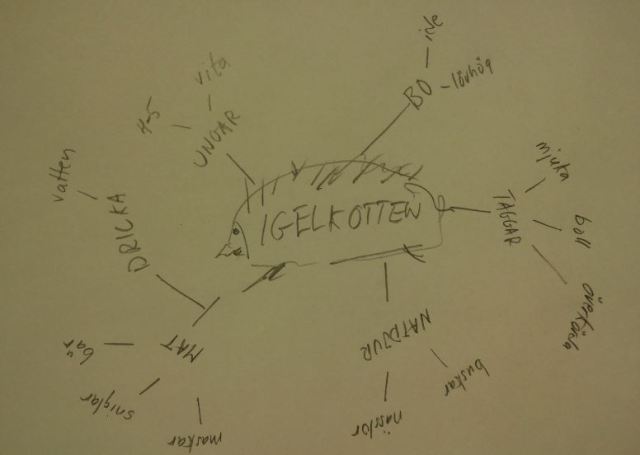 IGELKOTTEN
BO
ide
lövhög
TAGGAR
mjuka
boll
överkörda
NATDJUR
buskar
nässlor
MAT
maskar
sniglar
bär
DRICKA
vatten
UNGAR
4-5
vita